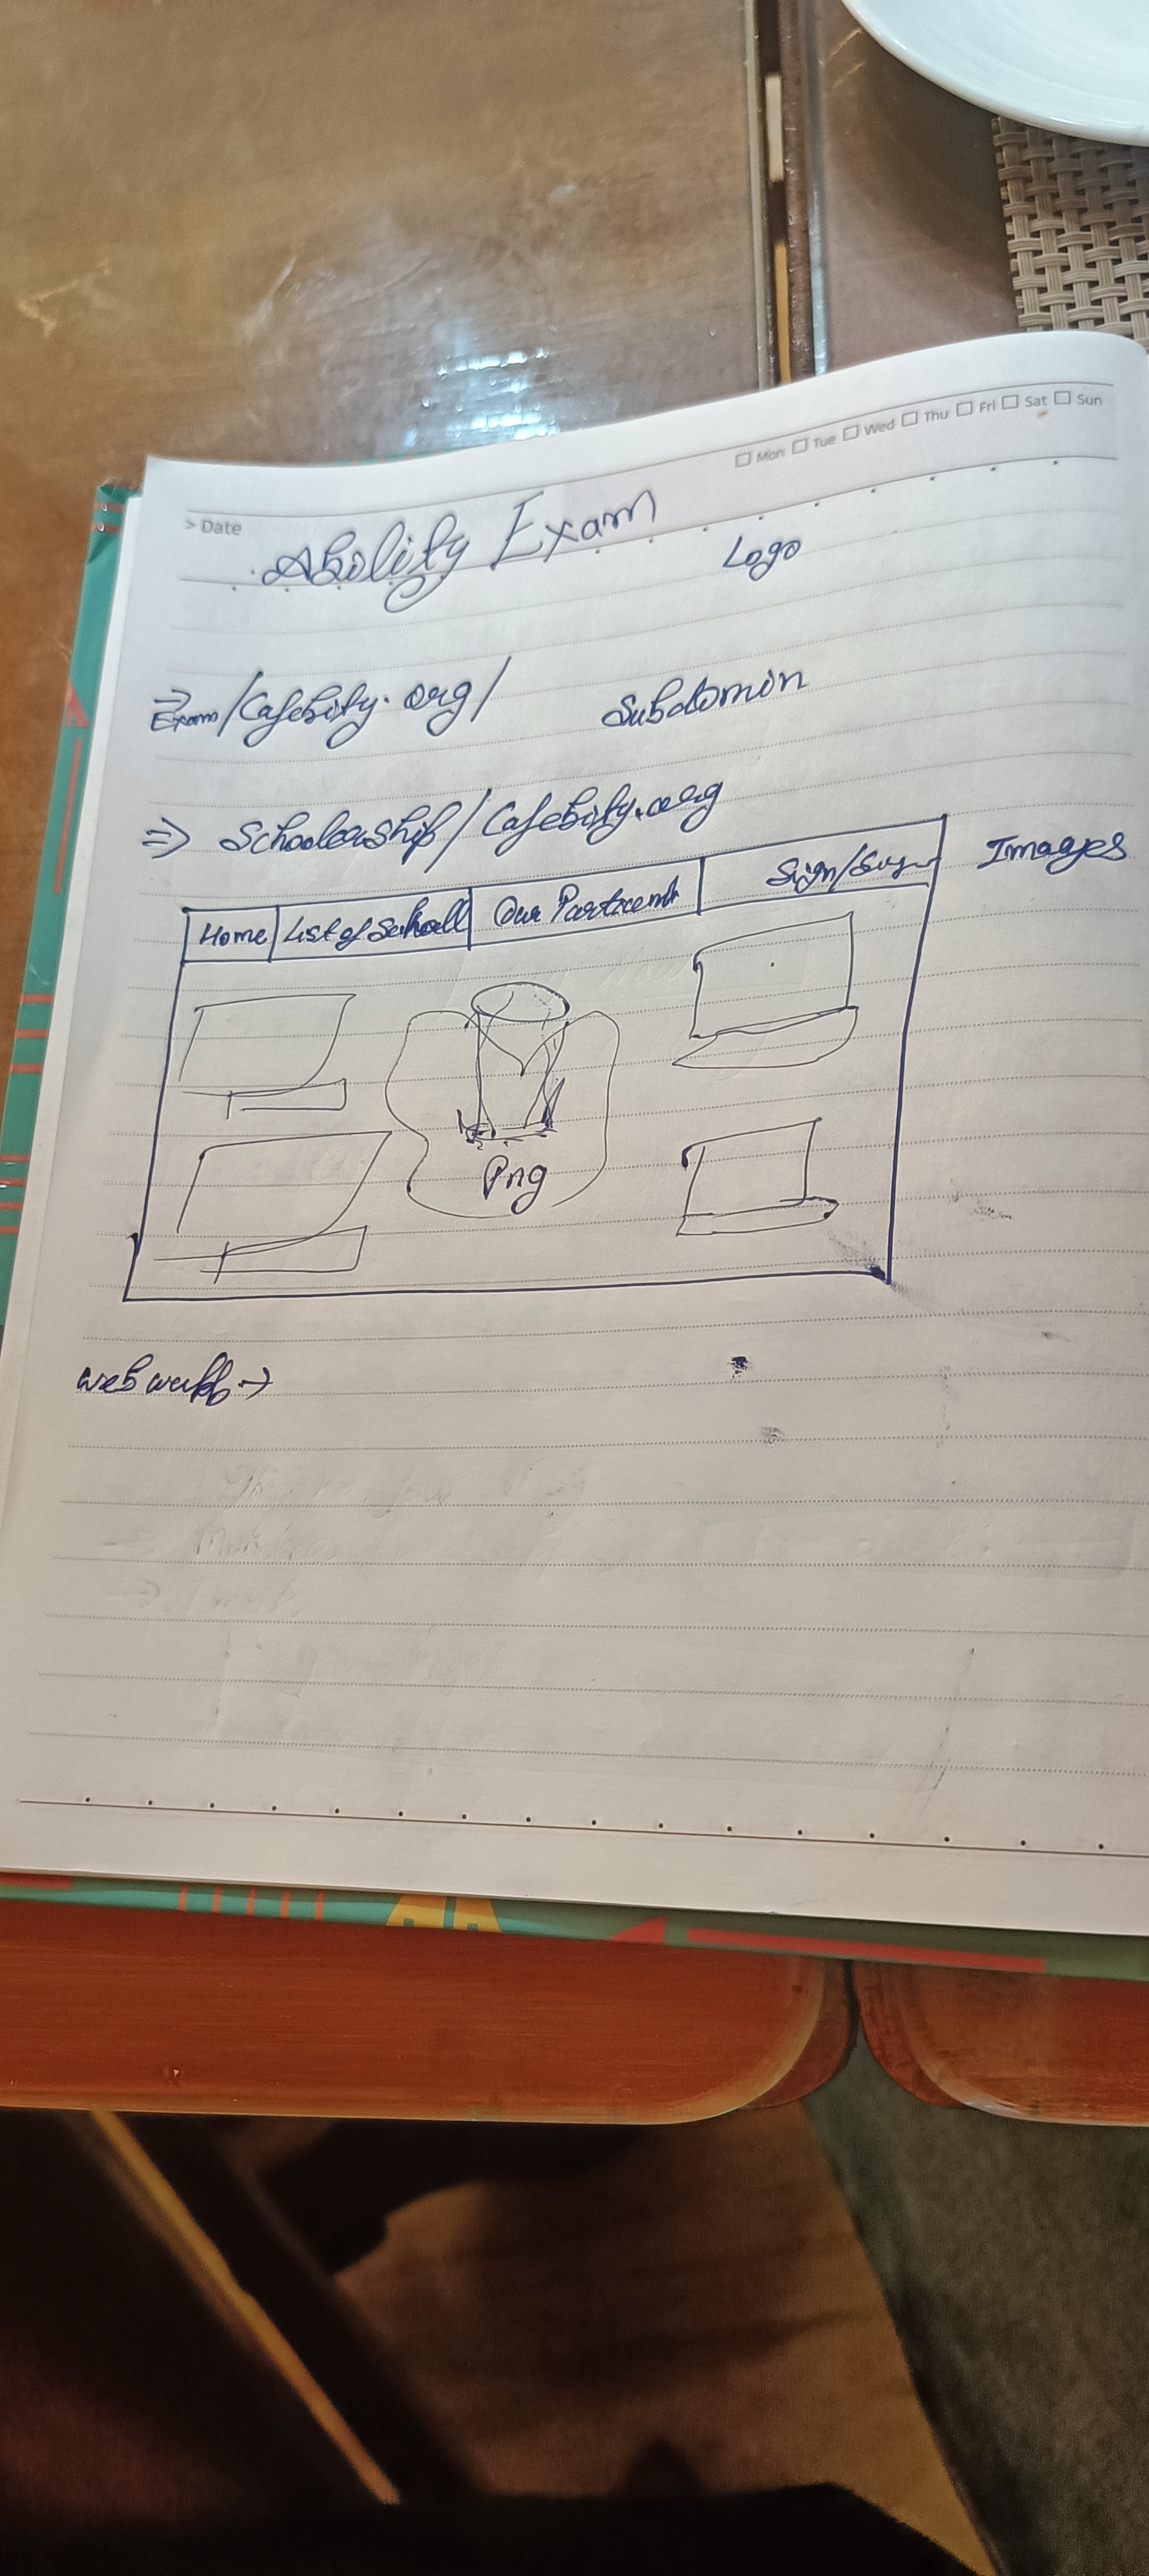 Mon Tue Wed Thu Fri Sat Sun
> Date
Ability Exam
Logo
⇒ Exam/Cafebify.org/ Subdomin
⇒ Schoolership/Cafebify.org
Images
Home List of School Our Partment Sign/
Png
web →